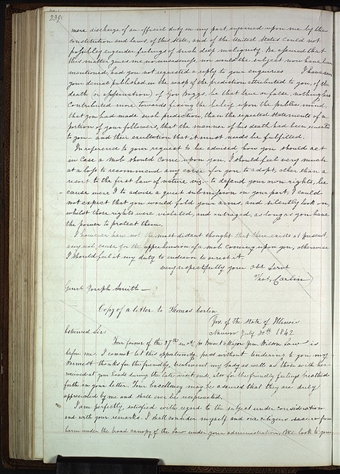 more discharge of an official duty in my part, enjoined upon me by the
constitution and laws of this state, and of the United States could not
possibly engender feelings of such deep malignity. Be assured that
this matter gives me no uneasiness, nor would the subject now have been
mentioned, had you not requested a reply to your enquiries. I have seen
your denial published in the Wasp of the prediction attributed to you, of the
death (or assassination) of Gov Boggs, be that true or false, nothing has
contributed more towards fixing the belief upon the public mind,
that you had made such prediction, than the repeated statements of a
portion of your followers, that the manner of his death had been revealed
to you and their exultation that it must needs be fulfilled.
In reference to your request to be advised how you should act
in case a mob should come upon you, I should feel very much
at a loss to recommend any course for you to adopt, other than a
resort to the first law of nature, viz: to defend your own rights, be
cause were I to advise a quiet submission on your part, I could
not expect that you would fold your arms, and silently look on
whilst those rights were violated, and outraged, as long as you have
the power to protect them.
I however have not the most distant thought that there exists at present,
any real cause for the apprehension of a mob coming upon you, otherwise
I should feel it my duty to endeavor to arrest it.
very respectfully your obt servt
Tho. Carlin
Genl Joseph Smith—
Copy of a letter to Thomas Carlin
Gov of the State of Illinois
Nauvoo July 30th 1842
Esteemed Sir
Your favor of the 27th inst by
before me. I cannot let this opportunity pass without tendering to you my
warmest thanks for the friendly treatment my lady as well as those with her
received at your hands during the late visit, and also for the friendly feelings breathed
forth in your letter. Your Excellency may be assured that they are duly
appreciated by me and shall ever be reciprocated.
I am perfectly satisfied with regard to the subject under consideration
and with your remarks. I shall consider myself and our citizens secure from
harm under the broad canopy of the law under your administration. We look to you